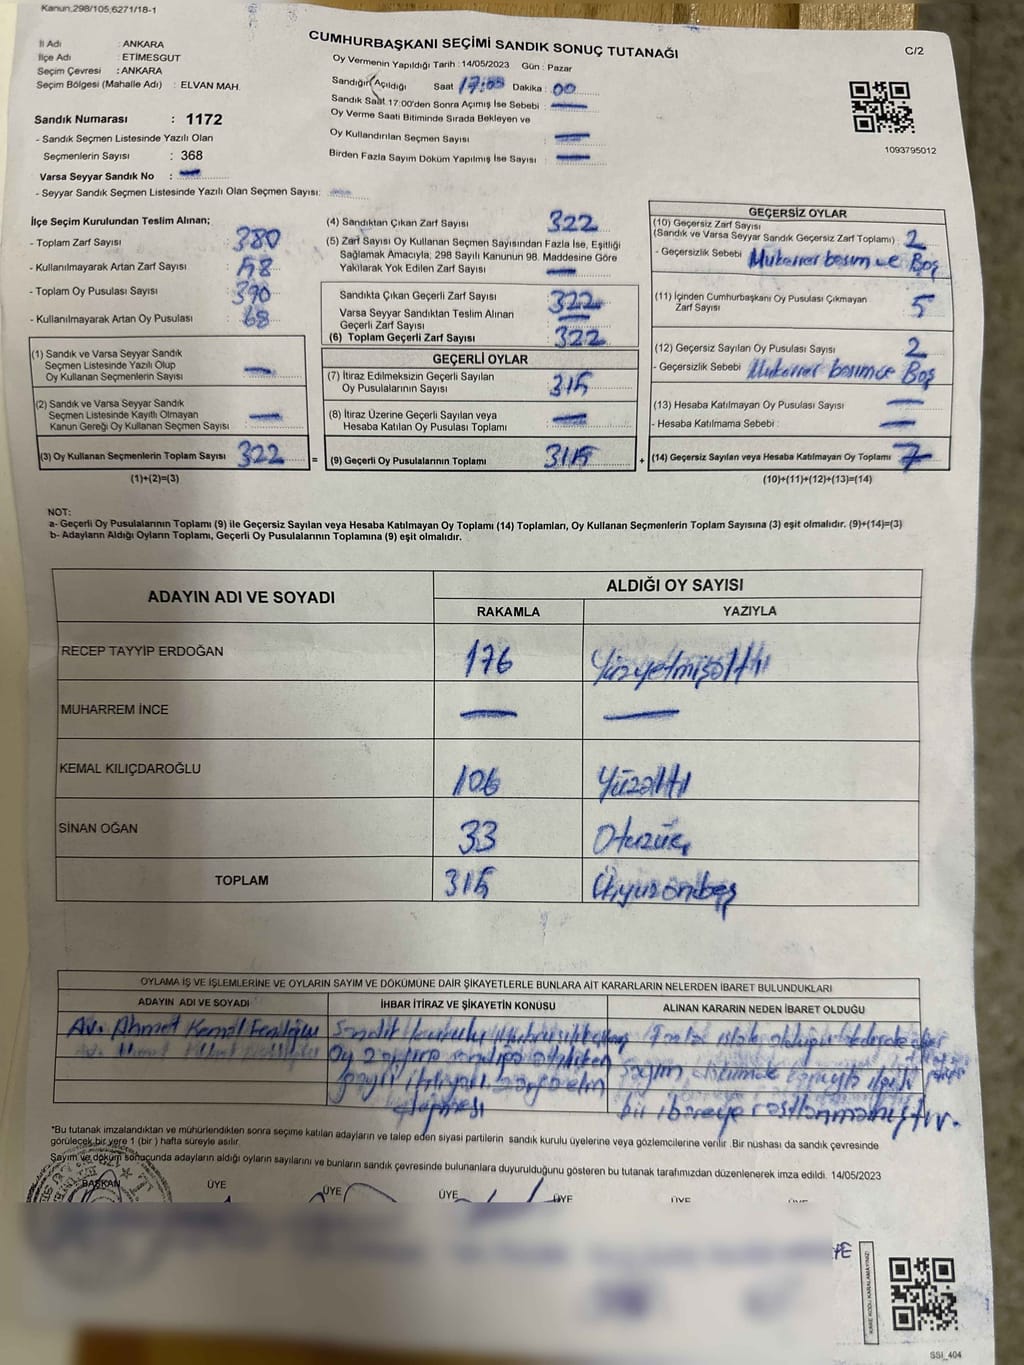 Kanun,298/105,6271/18-1
CUMHURBAŞKANI SEÇİMİ SANDIK SONUÇ TUTANAĞI
C/2
İl Adı : ANKARA
İlçe Adı : ETİMESGUT
Seçim Çevresi : ANKARA
Seçim Bölgesi (Mahalle Adı) : ELVAN MAH.
Sandık Numarası : 1172
- Sandık Seçmen Listesinde Yazılı Olan
Seçmenlerin Sayısı : 368
Varsa Seyyar Sandık No : —
- Seyyar Sandık Seçmen Listesinde Yazılı Olan Seçmen Sayısı: —
Oy Vermenin Yapıldığı Tarih : 14/05/2023 Gün : Pazar
Sandığın Açıldığı Saat Dakika : 00
Sandık Saat 17:00'den Sonra Açımış İse Sebebi : —
Oy Verme Saati Bitiminde Sırada Bekleyen ve
Oy Kullandırılan Seçmen Sayısı : —
Birden Fazla Sayım Döküm Yapılmış İse Sayısı : —
1093795012
İlçe Seçim Kurulundan Teslim Alınan;
- Toplam Zarf Sayısı : 380
- Kullanılmayarak Artan Zarf Sayısı : 58
- Toplam Oy Pusulası Sayısı : 390
- Kullanılmayarak Artan Oy Pusulası : 68
(1) Sandık ve Varsa Seyyar Sandık
Seçmen Listesinde Yazılı Olup
Oy Kullanan Seçmenlerin Sayısı : —
(2) Sandık ve Varsa Seyyar Sandık
Seçmen Listesinde Kayıtlı Olmayan
Kanun Gereği Oy Kullanan Seçmen Sayısı : —
(3) Oy Kullanan Seçmenlerin Toplam Sayısı 322
(1)+(2)=(3)
(4) Sandıktan Çıkan Zarf Sayısı : 322
(5) Zarf Sayısı Oy Kullanan Seçmen Sayısından Fazla İse, Eşitliği
Sağlamak Amacıyla; 298 Sayılı Kanunun 98. Maddesine Göre
Yakılarak Yok Edilen Zarf Sayısı : —
Sandıkta Çıkan Geçerli Zarf Sayısı : 322
Varsa Seyyar Sandıktan Teslim Alınan
Geçerli Zarf Sayısı : —
(6) Toplam Geçerli Zarf Sayısı : 322
GEÇERLİ OYLAR
(7) İtiraz Edilmeksizin Geçerli Sayılan
Oy Pusulalarının Sayısı : 315
(8) İtiraz Üzerine Geçerli Sayılan veya
Hesaba Katılan Oy Pusulası Toplamı : —
= (9) Geçerli Oy Pusulalarının Toplamı 315 +
GEÇERSİZ OYLAR
(10) Geçersiz Zarf Sayısı
(Sandık ve Varsa Seyyar Sandık Geçersiz Zarf Toplamı) : 2
- Geçersizlik Sebebi : Mükerrer basım ve Boş
(11) İçinden Cumhurbaşkanı Oy Pusulası Çıkmayan
Zarf Sayısı : 5
(12) Geçersiz Sayılan Oy Pusulası Sayısı : 2
- Geçersizlik Sebebi : Mükerrer basım ve Boş
(13) Hesaba Katılmayan Oy Pusulası Sayısı : —
- Hesaba Katılmama Sebebi : —
(14) Geçersiz Sayılan veya Hesaba Katılmayan Oy Toplamı : 7
(10)+(11)+(12)+(13)=(14)
NOT:
a- Geçerli Oy Pusulalarının Toplamı (9) ile Geçersiz Sayılan veya Hesaba Katılmayan Oy Toplamı (14) Toplamları, Oy Kullanan Seçmenlerin Toplam Sayısına (3) eşit olmalıdır. (9)+(14)=(3)
b- Adayların Aldığı Oyların Toplamı, Geçerli Oy Pusulalarının Toplamına (9) eşit olmalıdır.
ADAYIN ADI VE SOYADI
ALDIĞI OY SAYISI
RAKAMLA YAZIYLA
RECEP TAYYİP ERDOĞAN 176 Yüzyetmişaltı
MUHARREM İNCE — —
KEMAL KILIÇDAROĞLU 106 Yüzaltı
SİNAN OĞAN 33 Otuzüç
TOPLAM 315 Üçyüzonbeş
OYLAMA İŞ VE İŞLEMLERİNE VE OYLARIN SAYIM VE DÖKÜMÜNE DAİR ŞİKAYETLERLE BUNLARA AİT KARARLARIN NELERDEN İBARET BULUNDUKLARI
ADAYIN ADI VE SOYADI İHBAR İTİRAZ VE ŞİKAYETİN KONUSU ALINAN KARARIN NEDEN İBARET OLDUĞU
Av. Ahmet Kemal Sandık
Oy
sayım
bir ibareye rastlanmamıştır.
*Bu tutanak imzalandıktan ve mühürlendikten sonra seçime katılan adayların ve talep eden siyasi partilerin sandık kurulu üyelerine veya gözlemcilerine verilir .Bir nüshası da sandık çevresinde
görülecek bir yere 1 (bir ) hafta süreyle asılır.
Sayım ve döküm sonucunda adayların aldığı oyların sayılarını ve bunların sandık çevresinde bulunanlara duyurulduğunu gösteren bu tutanak tarafımızdan düzenlenerek imza edildi. 14/05/2023
BAŞKAN ÜYE ÜYE ÜYE ÜYE ÜYE ÜYE
SSİ_404